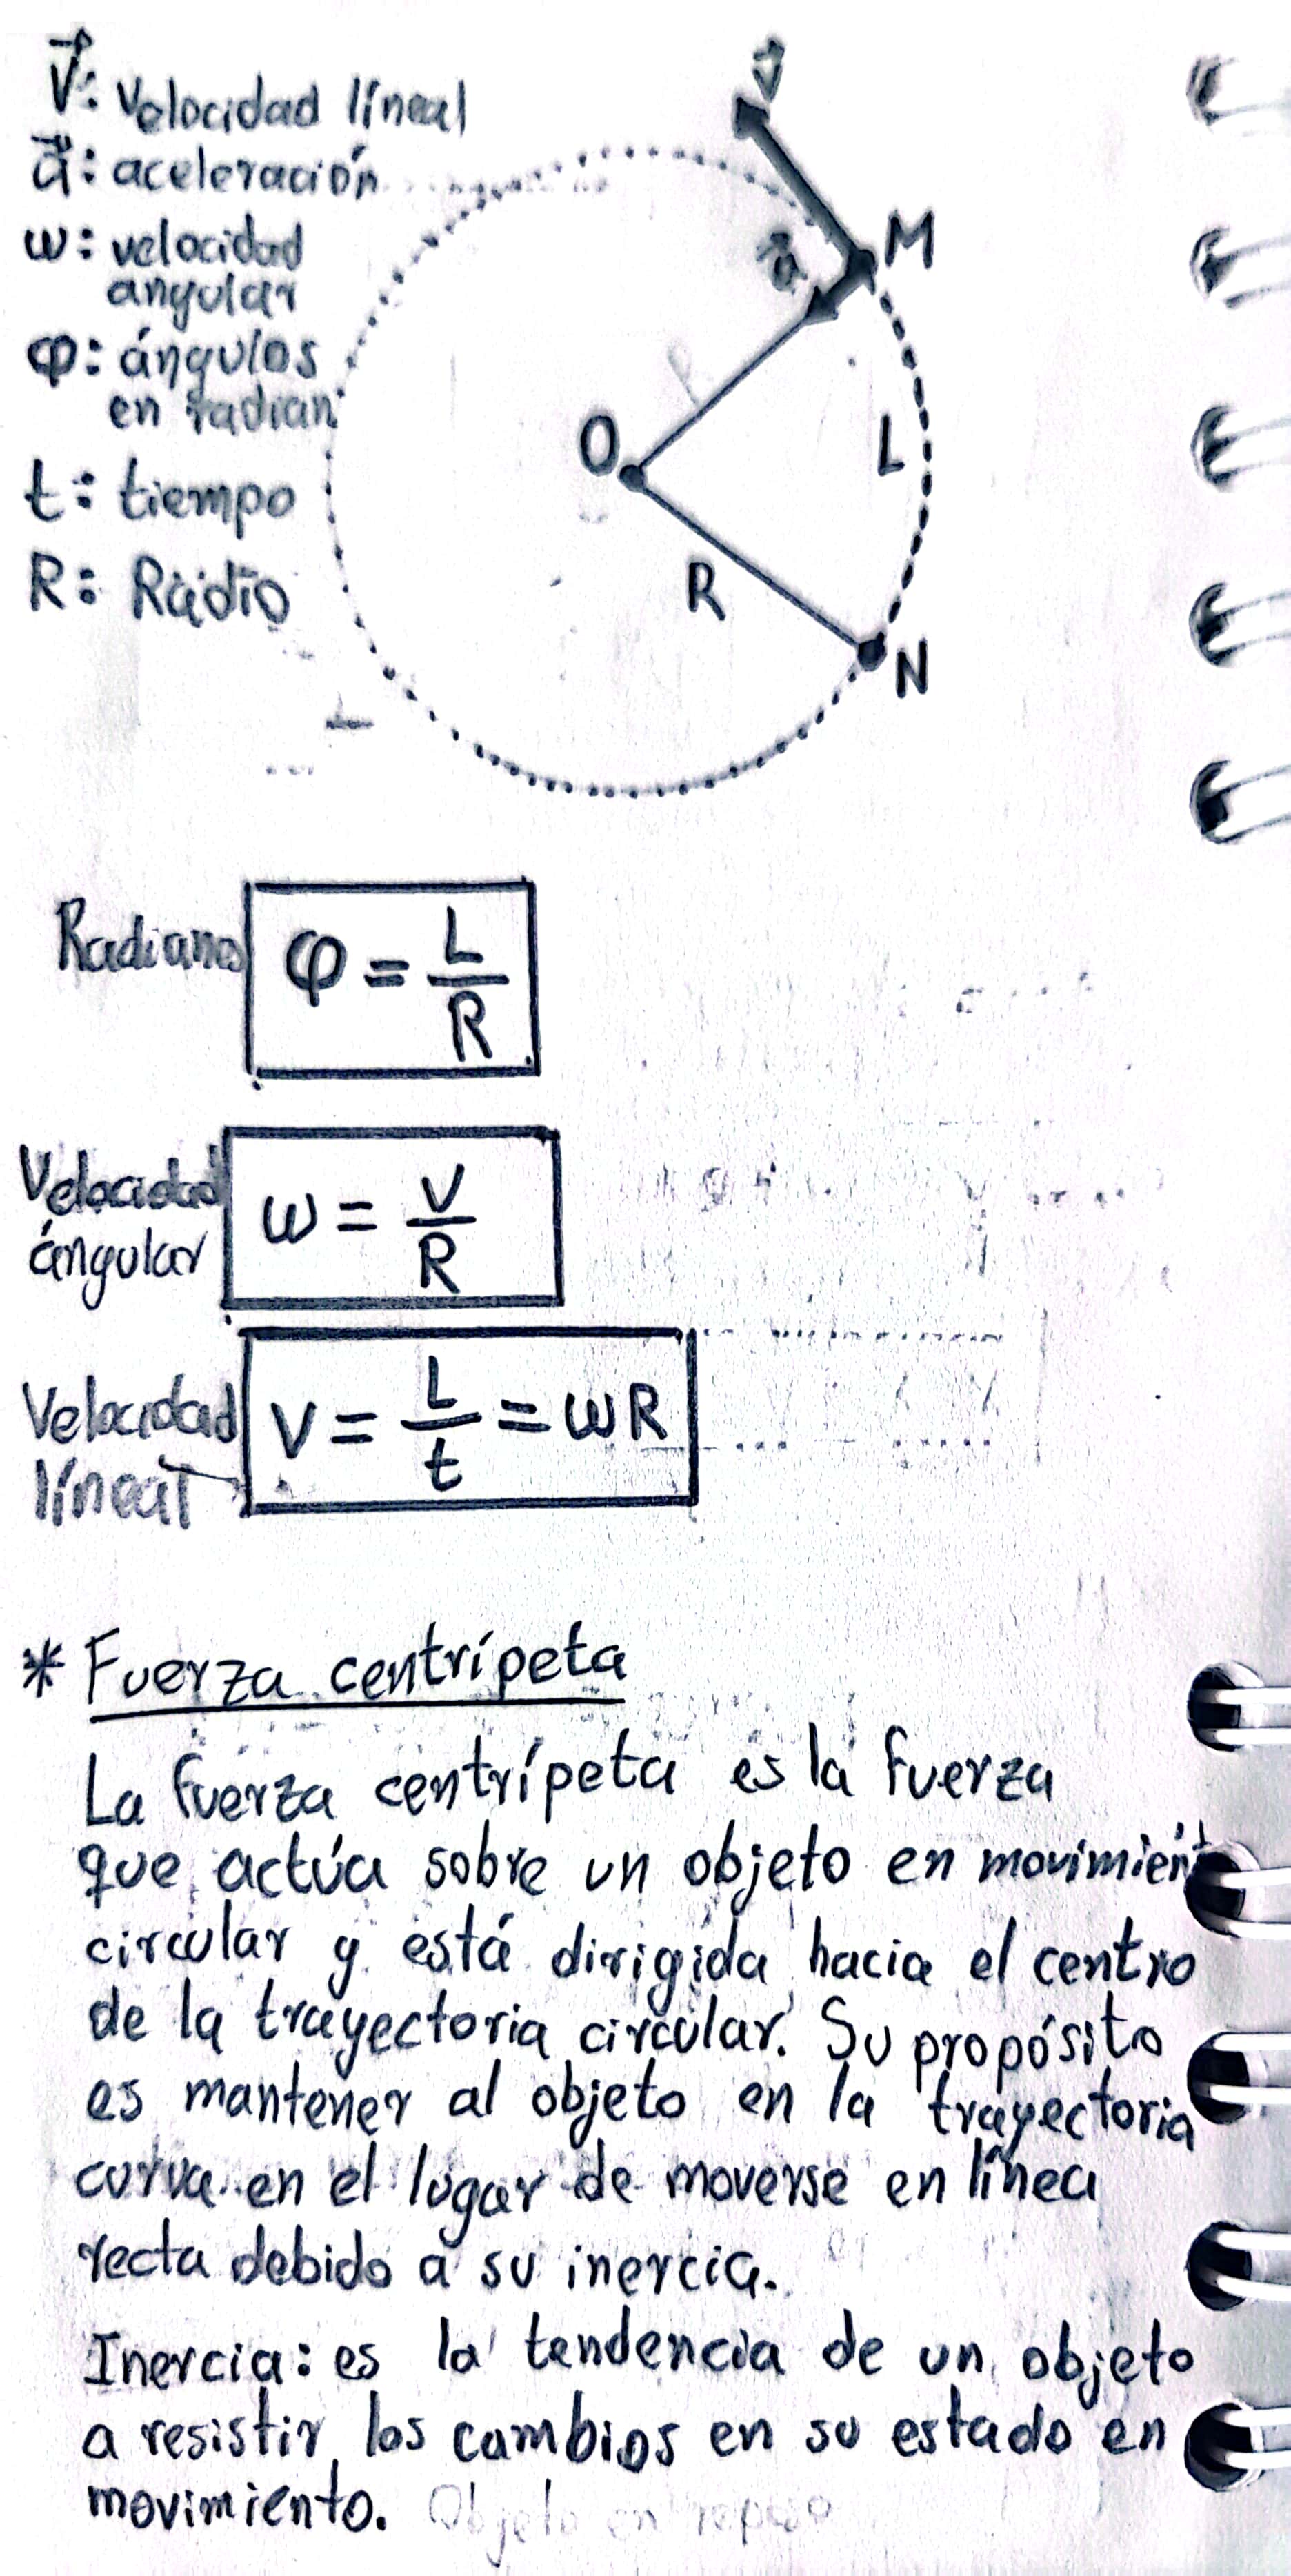 V⃗: Velocidad líneal
a⃗: aceleración
ω: velocidad
angular
φ: ángulos
en radian
t: tiempo
R: Radio
V⃗
M
a⃗
O
L
R
N
Radianes
φ = L/R
Velocidad
ángular
ω = V/R
Velocidad
líneal
V = L/t = ωR
* Fuerza centrípeta
La fuerza centrípeta es la fuerza
que actúa sobre un objeto en movimient
circular y está dirigida hacia el centro
de la trayectoria circular. Su propósito
es mantener al objeto en la trayectoria
curva en el lugar de moverse en línea
recta debido a su inercia.
Inercia: es la tendencia de un objeto
a resistir los cambios en su estado en
movimiento. Objeto en reposo